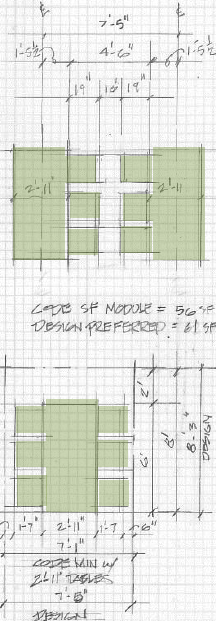 7'-5"
1'-5½ 4'-6" 1'-5½
19" 16" 19"
2'-11" 2'-11
CODE SF MODULE = 56 SF
DESIGN PREFERRED = 61 SF
2'
6'
8'
8'-3"
DESIGN
1'-7" 2'-11" 1'-7 6"
7'-1"
CODE MIN W/
2'-11" TABLES
7'-5"
DESIGN